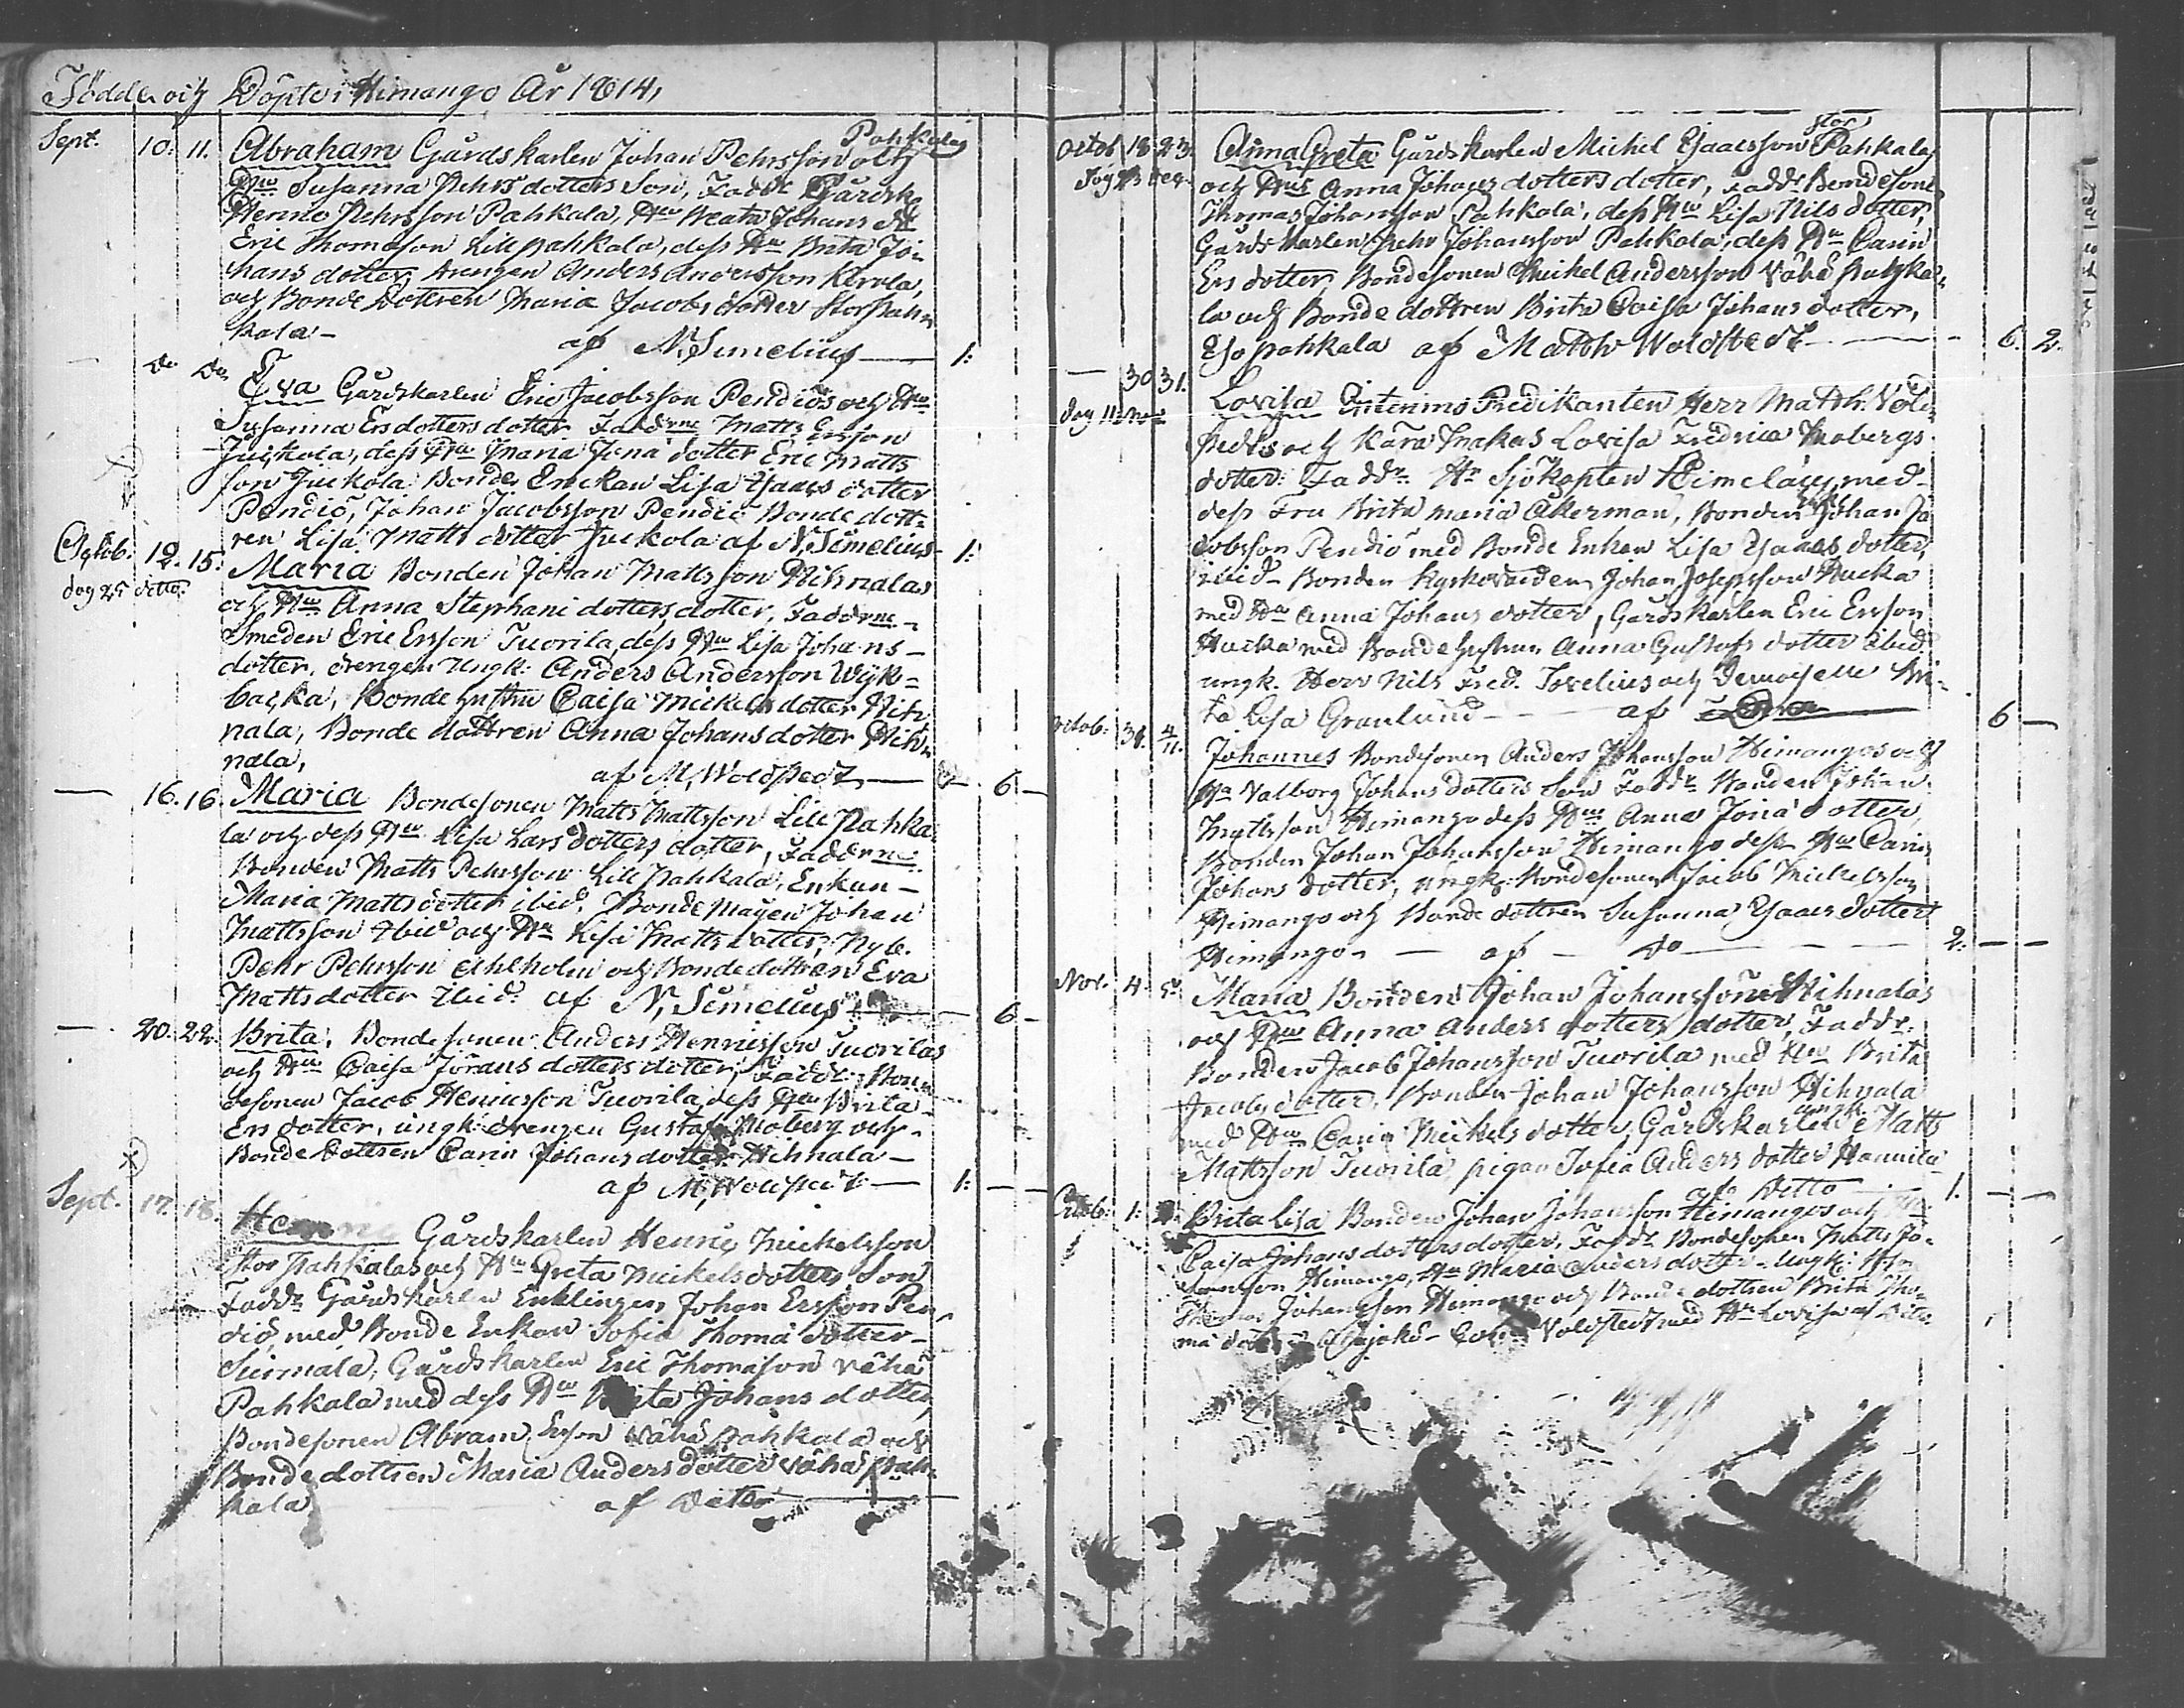 Födde och Döpte i Himango År 1814,
Sept. 10. 11. Abraham Gårdskarlen Johan Pehrsson Pahkalas och
Hu Susanna Pehrs dotters Son, Faddr Gårdsk.
Henric Pehrsson Pahkala, Hu Beata Johans dtr
Eric Thomasson Lillpahkala, dess Hu Brita Jo-
hans dotter, drengen Anders Andersson Kerola,
och Bonde Dottren Maria Jacobs dotter Storpah-
kala - af N. Simelius - 1:
Do Do Eva Gårdskarlen Eric Jacobsson Pendiös och Hu
Susanna Ersdotters dotter Faddrne Matts Ersson
Juckola, dess Hu Maria Jona dotter Eric Matts
son Juckola Bonde Enckan Lisa Isaacs dotter
Pendiö, Johan Jacobsson Pendiö Bonde dott-
ren Lisa Matts dotter Juckola af N. Simelius 1:
Octob. 12. 15. Maria Bonden Johan Mattsson Hihnalas
dog 25 ditto. och Hu Anna Stephani dotters dotter, Faddrne
Smeden Eric Ersson Tuorila, dess Hu Lisa Johans-
dotter, drengen Ungk: Anders Andersson Wijk-
backa, Bonde hustru Caisa Mickels dotter Hih-
nala, Bonde dottren Anna Johansdotter Hih-
nala, af M. Woldstedt - 6 -
16. 16. Maria Bondesonen Matts Mattsson Lill Pahka-
la och dess Hu Lisa Lars dotters dotter, Faddrne
Bonden Matts Pehrsson Lill Pahkala, Enkan -
Maria Mattsdotter ibid. Bonde Magen Johan
Mattsson Ibid och Hu Lisa Matts dotter, Nyb.
Pehr Pehrsson Ahlholm och Bondedottren Eva
Mattsdotter Ibid. af N. Simelius - 6 -
20. 22. Brita, Bondesonen Anders Henricsson Tuorilas
och Hu Caisa Jörans dotters dotter, Faddr: Bon-
desonen Jacob Henricsson Tuorila, dess Hu Brita
Ers dotter, ungk: drengen Gustaf Moberg och
Bonde Dottren Carin Johans dotter Hihnala -
af M. Woldstedt - 1: - -
Sept. 17. 18. Henric Gårdskarlen Henric Mickelsson
Stor Pahkalas och Hu Greta Mickels dotters Son
Faddr Gårdskarlen Enklingen Johan Ersson Pen-
diö, med Bonde Enkan Sofia Thoma dotter -
Siirmala, Gårdskarlen Eric Thomason Vähä
Pahkala med dess Hu Brita Johans dotter,
Bondesonen Abram Ersson Vähä Pahkala och
Bonde dottren Maria Anders dotter Vähä Pah-
kala af ditto
Octob 18. 23. Anna Greta Gårdskarlen Michel Isaacsson Stor Pahkalas
och Hus Anna Johans dotters dotter, Faddr Bondesonen
Thomas Johansson Pahkala, dess Hu Lisa Nils dotter,
Gårdskarlen Pehr Johansson Pahkala, dess Hu Carin
Ers dotter, Bondesonen Michel Andersson Vähä Pahka-
la och Bonde dottren Brita Caisa Johans dotter,
Isopahkala af Matth Woldstedt - 6. 2.
- 30 31. Lovisa Interims Predikanten Herr Matth. Vold-
dog 11 Nov stedts och Kära Makas Lovisa Fredrica Mobergs
dotter: Faddr: Hr Sjökapten Himelæus med
dess Fru Brita Maria Åkerman, Bonden Johan Ja-
cobsson Pendiö med Bonde Enkan Lisa Isaacs dotter,
ibid - Bonden Kyrkovärden Johan Josepsson Hucka
med Hu Anna Johans dotter, Gårdskarlen Eric Ersson
Hucka med Bonde hustrun Anna Gustafs dotter ibid
ungk. Herr Nils Fred. Torelius och Demoiselle Bri-
ta Lisa Granlund - af 6 -
Octob: 31. 4/11. Johannes Bondesonen Anders Johansson Himangos och
Hu Valborg Johans dotters Son Faddr Bonden Johan
Mattsson Himango dess Hu Anna Jona dotter,
Bonden Johan Johansson Himango dess Hu Carin
Johans dotter, ungk: Bondesonen Jacob Mickelsson
Himango och Bonde dottren Susanna Isaacs dotter
Himango - af - Do - 2. - -
Nov. 4. 5. Maria Bonden Johan Johansson Hihnalas
och Hu Anna Anders dotters dotter, Faddr:
Bonden Jacob Johansson Tuorila med Hu Brita
Jacobs dotter, Bonden Johan Johansson Hihnala
med Hu Carin Mickels dotter, Gårdskarlen ungk. Matts
Mattsson Tuorila, pigan Sofia Anders dotter Hannila
af Ditto 1. - -
Octob: 1: Brita Lisa Bonden Johan Johansson Himangos och Hu
Caisa Johans dotters dotter, Faddr Bondesonen Matts Jo-
hansson Himango, Hu Maria Anders dotter - Ungk:
Thomas Johansson Himango och Bonde dottren Brita Tho-
ma dotter Voldstedt med Hu Lovisa af Ditto